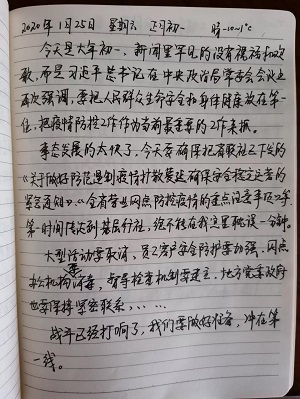 2020年1月25日 星期六 正月初一 晴-10~1℃
今天是大年初一，新闻里罕见的没有祝福和欢
歌，而是习近平总书记在中央政治局常委会会议上
再次强调，要把人民群众生命安全和身体健康放在第一
位，把疫情防控工作作为当前最重要的工作来抓。
事态发展的太快了，今天要确保把省联社下发的
《关于做好防范遇到疫情扩散蔓延确保安全稳定运营的
紧急通知》、《全省营业网点防控疫情的
第一时间传达到基层行社，绝不能在我这里耽误一分钟。
大型活动要取消，员工客户安全防护要加强，网点
要 消毒，督导检查机制要建立，地方党委政府
也要保持紧密联系，……
战斗已经打响了，我们要做好准备，冲在第
一线。